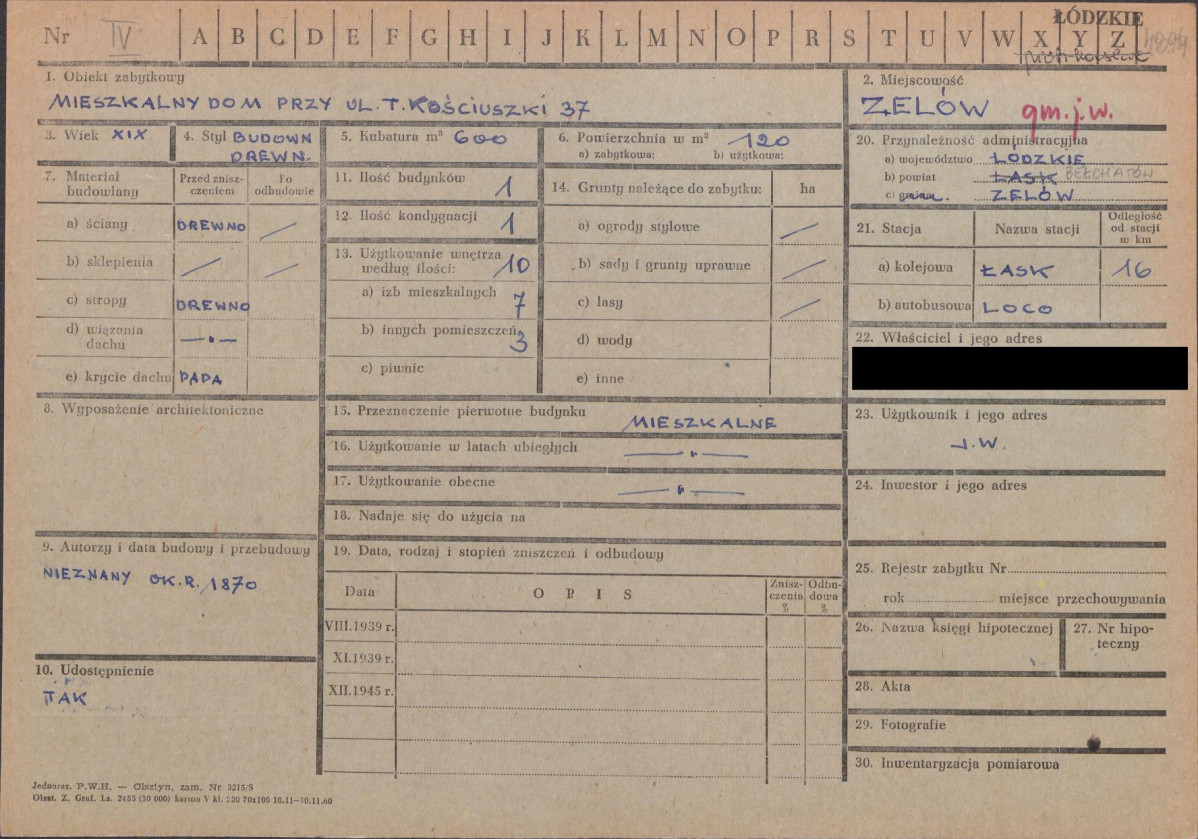 Nr IV A B C D E F G H I J K L M N O P R S T U V W X Y Z
ŁÓDZKIE
4894
1. Obiekt zabytkowy
MIESZKALNY DOM PRZY UL. T. KOŚCIUSZKI 37
2. Miejscowość
ZELÓW gm. j.w.
3. Wiek XIX
4. Styl BUDOWN
DREWN.
5. Kubatura m³ 600
6. Powierzchnia w m² 120
a) zabytkowa: b) użytkowa:
20. Przynależność administracyjna
a) województwo ŁÓDZKIE
b) powiat ŁASK BEŁCHATÓW
c) gmina ZELÓW
7. Materiał budowlany
Przed zniszczeniem
Po odbudowie
a) ściany DREWNO
b) sklepienia
c) stropy DREWNO
d) wiązania dachu —"—
e) krycie dachu PAPA
11. Ilość budynków 1
12. Ilość kondygnacji 1
13. Użytkowanie wnętrza
według ilości: 10
a) izb mieszkalnych 7
b) innych pomieszczeń 3
c) piwnic
14. Grunty należące do zabytku: ha
a) ogrody stylowe
b) sady i grunty uprawne
c) lasy
d) wody
e) inne
21. Stacja Nazwa stacji Odległość od stacji w km
a) kolejowa ŁASK 16
b) autobusowa LOCO
22. Właściciel i jego adres
8. Wyposażenie architektoniczne
15. Przeznaczenie pierwotne budynku
MIESZKALNE
16. Użytkowanie w latach ubiegłych —"—
17. Użytkowanie obecne —"—
18. Nadaje się do użycia na
23. Użytkownik i jego adres
J.W.
24. Inwestor i jego adres
9. Autorzy i data budowy i przebudowy
NIEZNANY OK. R. 1870
19. Data, rodzaj i stopień zniszczeń i odbudowy
Data OPIS Zniszczenia % Odbudowa %
VIII.1939 r.
XI.1939 r.
XII.1945 r.
25. Rejestr zabytku Nr
rok miejsce przechowywania
26. Nazwa księgi hipotecznej
27. Nr hipoteczny
10. Udostępnienie
TAK
28. Akta
29. Fotografie
30. Inwentaryzacja pomiarowa
Jednoraz. P.W.H. — Olsztyn, zam. Nr 3215/S
Olszt. Z. Graf. Lz. 2455 (30 000) karton V kl. 220 70x100 10.11—30.11.60